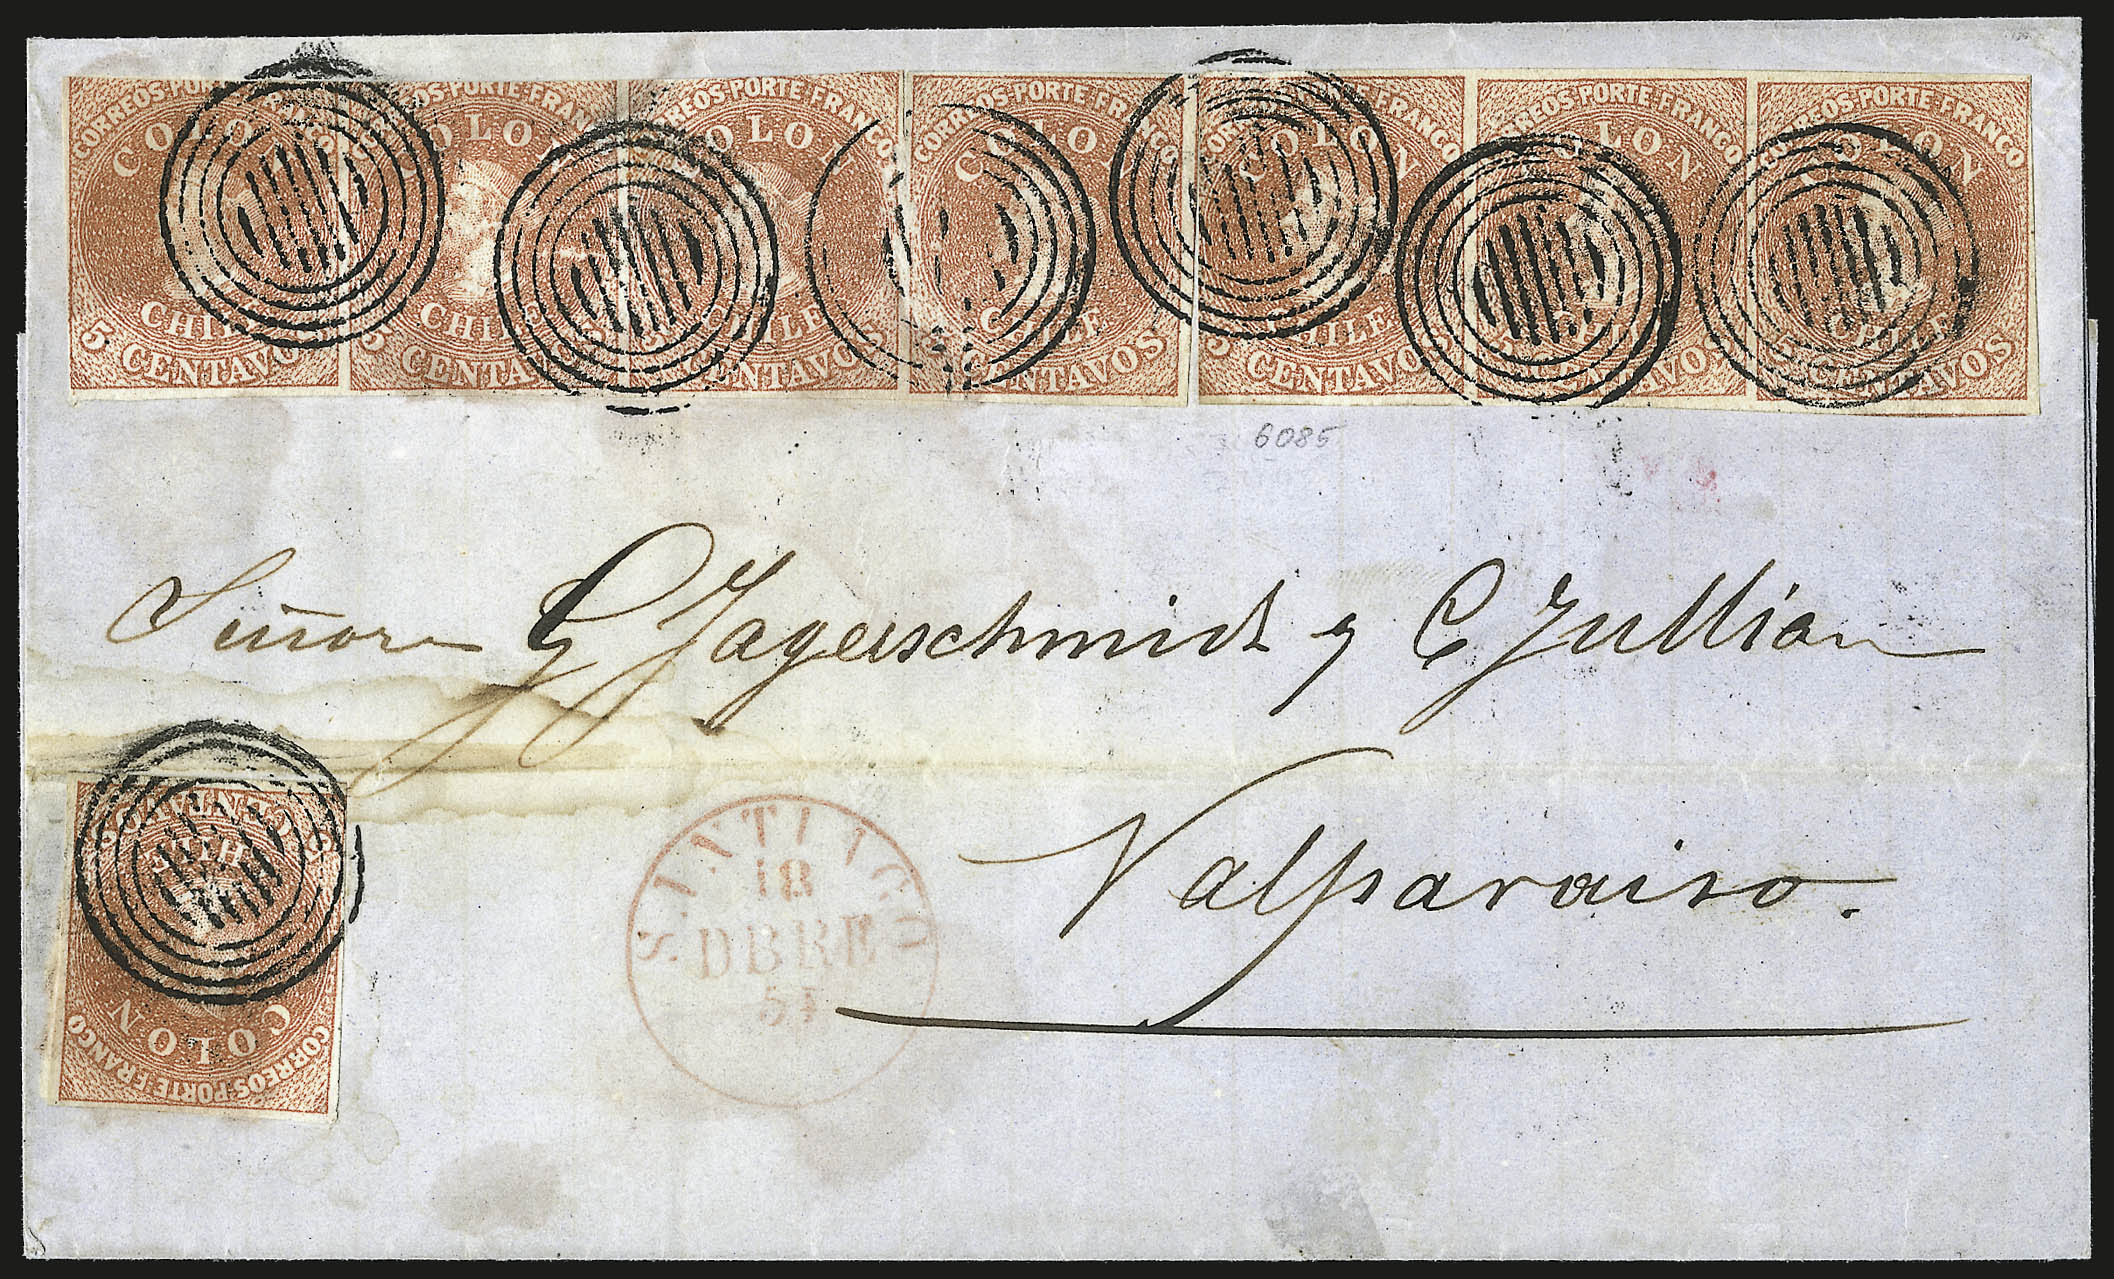 CORREOS·PORTE FRANCO CORREOS·PORTE·FRANCO CORREOS·PORTE FRANCO CORREOS·PORTE FRANCO CORREOS·PORTE FRANCO CORREOS·PORTE FRANCO CORREOS·PORTE FRANCO
COLON COLON COLON COLON COLON COLON COLON
CHILE CHILE CHILE CHILE CHILE CHILE CHILE
5 CENTAVOS 5 CENTAVOS 5 CENTAVOS 5 CENTAVOS 5 CENTAVOS 5 CENTAVOS 5 CENTAVOS
6085
Señores Jagerschmidt y C Jullian
Valparaiso.
SANTIAGO
18
DBRE
54
5 CENTAVOS
CHILE
COLON
CORREOS·PORTE FRANCO